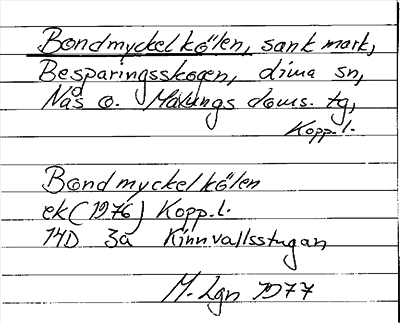 Bondmyckelkölen, sank mark,
Besparingsskogen, Lima sn,
Nås o. Malungs doms. tg,
Kopp.l.
Bondmyckelkölen
ek (1976) Kopp.l.
14D 3a Kinnvallsstugan
M. Lgn 1977